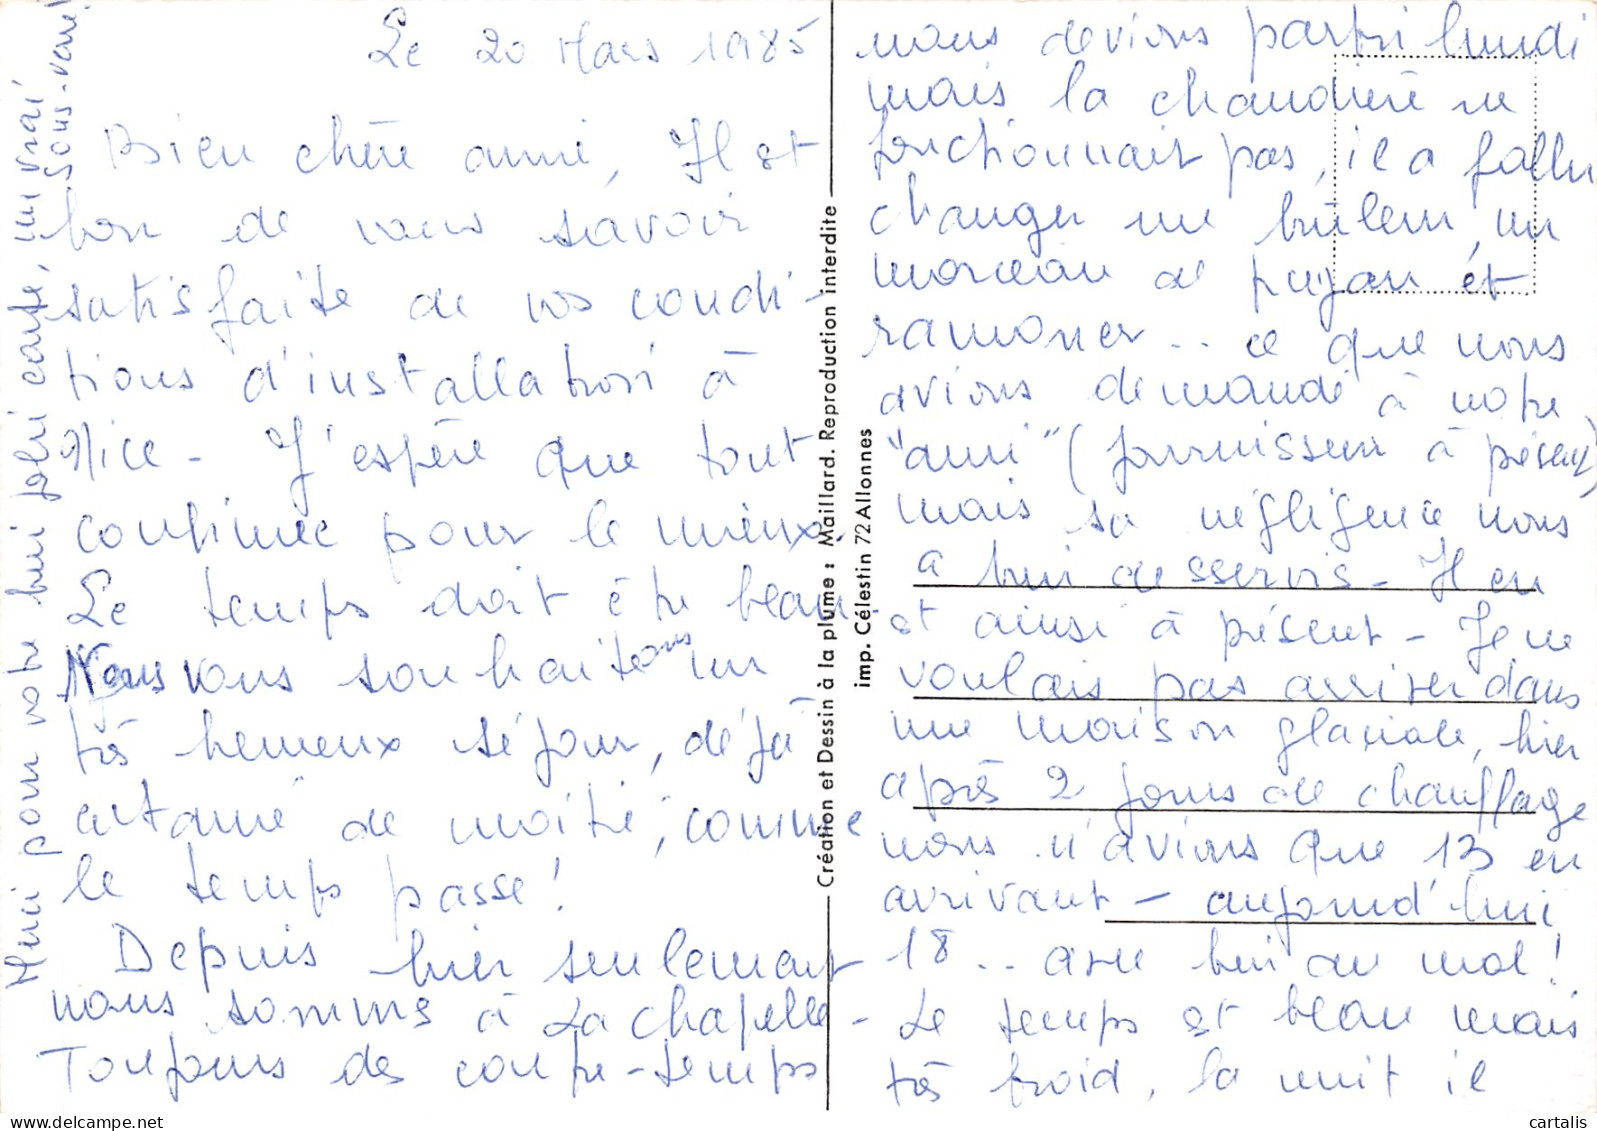 Le 20 Mars 1985
Bien chère amie, Il est
bon de vous savoir
satisfaite de vos condi-
tions d'installation à
Nice - J'espère que tout
continue pour le mieux.
Le temps doit être beau.
Nous vous souhaitons un
très heureux séjour, déjà
entamé de moitié, comme
le temps passe!
Depuis hier seulement
nous sommes à La chapelle -
Toujours des contre-temps
nous devions partir lundi
mais la chaudière ne
fonctionnait pas, il a fallu
changer un brûleur, un
morceau de tuyau et
ramoner .. ce que nous
avions demandé à notre
"ami" (fournisseur à présent)
mais sa négligence nous
a bien desservis - Il en
est ainsi à présent - Je ne
voulais pas arriver dans
une maison glaciale, hier
après 2 jours de chauffage
nous n'avions que 13 en
arrivant - aujourd'hui
18 .. avec bien du mal!
Le temps est beau mais
très froid, la nuit il
Merci pour votre bien jolie carte, un vrai
sous-verre!
Création et Dessin à la plume : Maillard. Reproduction interdite
imp. Célestin 72 Allonnes
cartalis.com